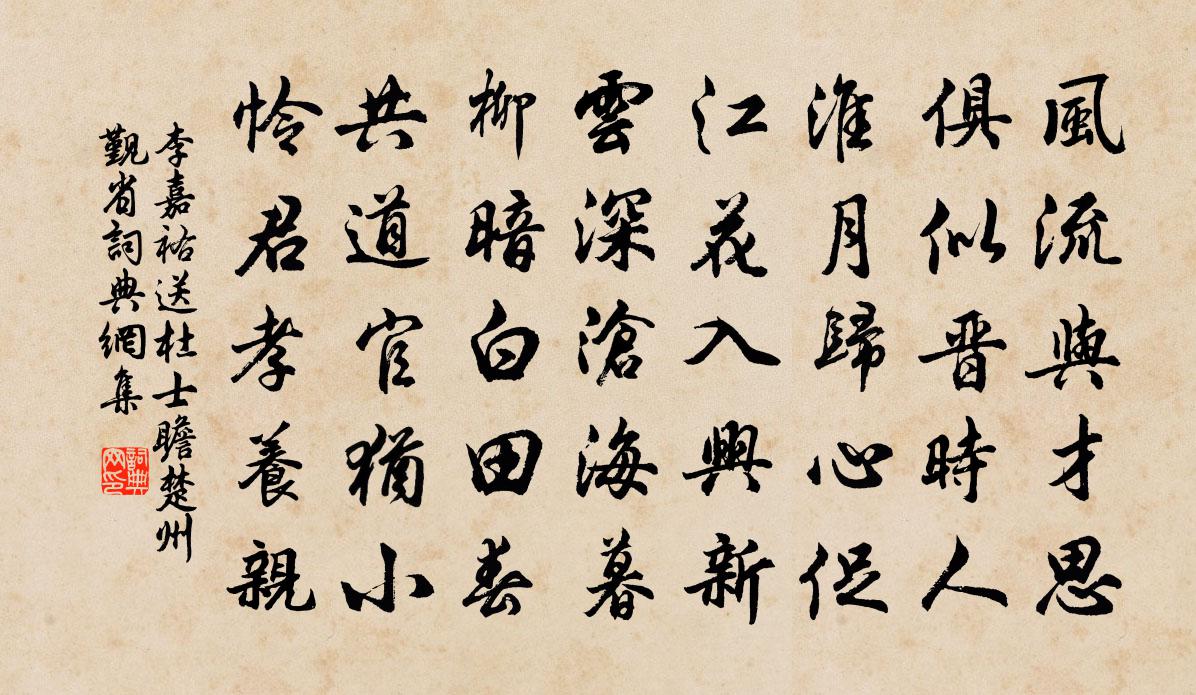 風流與才思
俱似晋時人
淮月歸心促
江花入興新
雲深滄海暮
柳暗白田春
共道官猶小
怜君孝養親
李嘉祐送杜士瞻楚州
覲省詞典網集
詞典网印